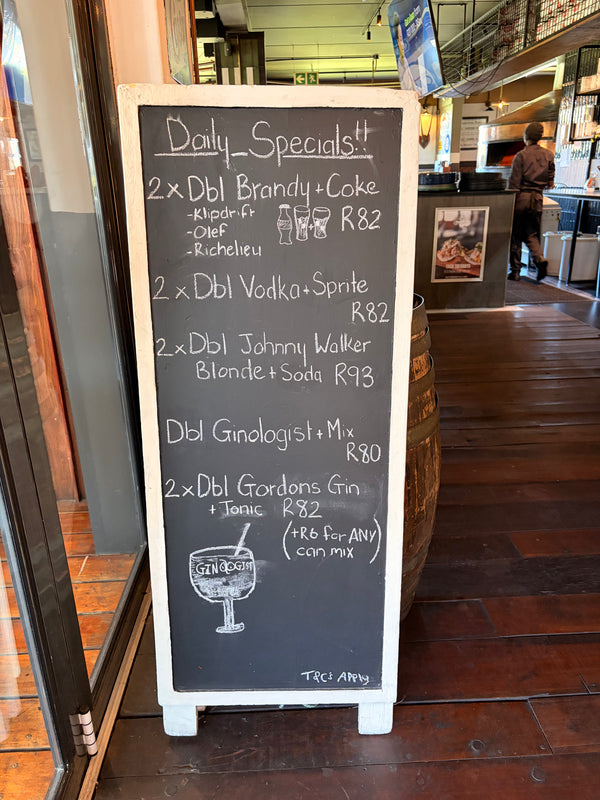 Daily Specials!!
2 x Dbl Brandy + Coke
- Klipdrift
R82
- Olef
- Richelieu
2 x Dbl Vodka + Sprite
R82
2 x Dbl Johnny Walker
Blonde + Soda R93
Dbl Ginologist + Mix
R80
2 x Dbl Gordons Gin
+ Tonic R82
(+R6 for ANY
can mix)
GINOLOGIST
T&C's Apply